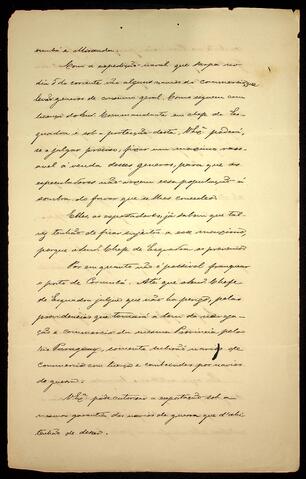 e Miranda.
Com a expedição naval que zarpa no
dia 5 do corrente vão alguns navios do commercio, que
levão generos de consumo geral. Como seguem com
licença do Snr. Commandante em Chefe da Es-
quadra e sob a protecção desta, V. Exª poderá,
se o julgar preciso, fixar um maximo rasoa-
vel á venda desses generos, para que os
especuladores não vexem essa população á
sombra do favor que se lhes concede.
Elles, os exportadores, já sabem que tal-
vez tenhão de ficar sujeitos a esse maximo,
porque o Snr. Chefe da Esquadra os prevenio.
Por emquanto não é possivel franquear
o porto de Corumbá. Até que o Snr. Chefe
da Esquadra julgue que não ha perigo, pelas
providencias que tomará a bem da navega-
ção e commercio da mesma Provincia pelo
Rio Paraguay, convem subão navios de
commercio com licença e comboiados por navios
de guerra.
V. Exª póde autorisar a exportação sob a
mesma garantia dos navios de guerra que d'ahi
tenhão de descer.